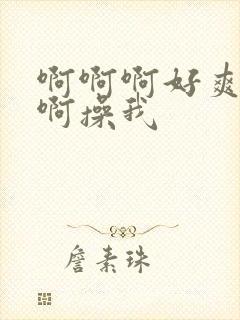 啊啊啊好爽
啊操我
詹素珠